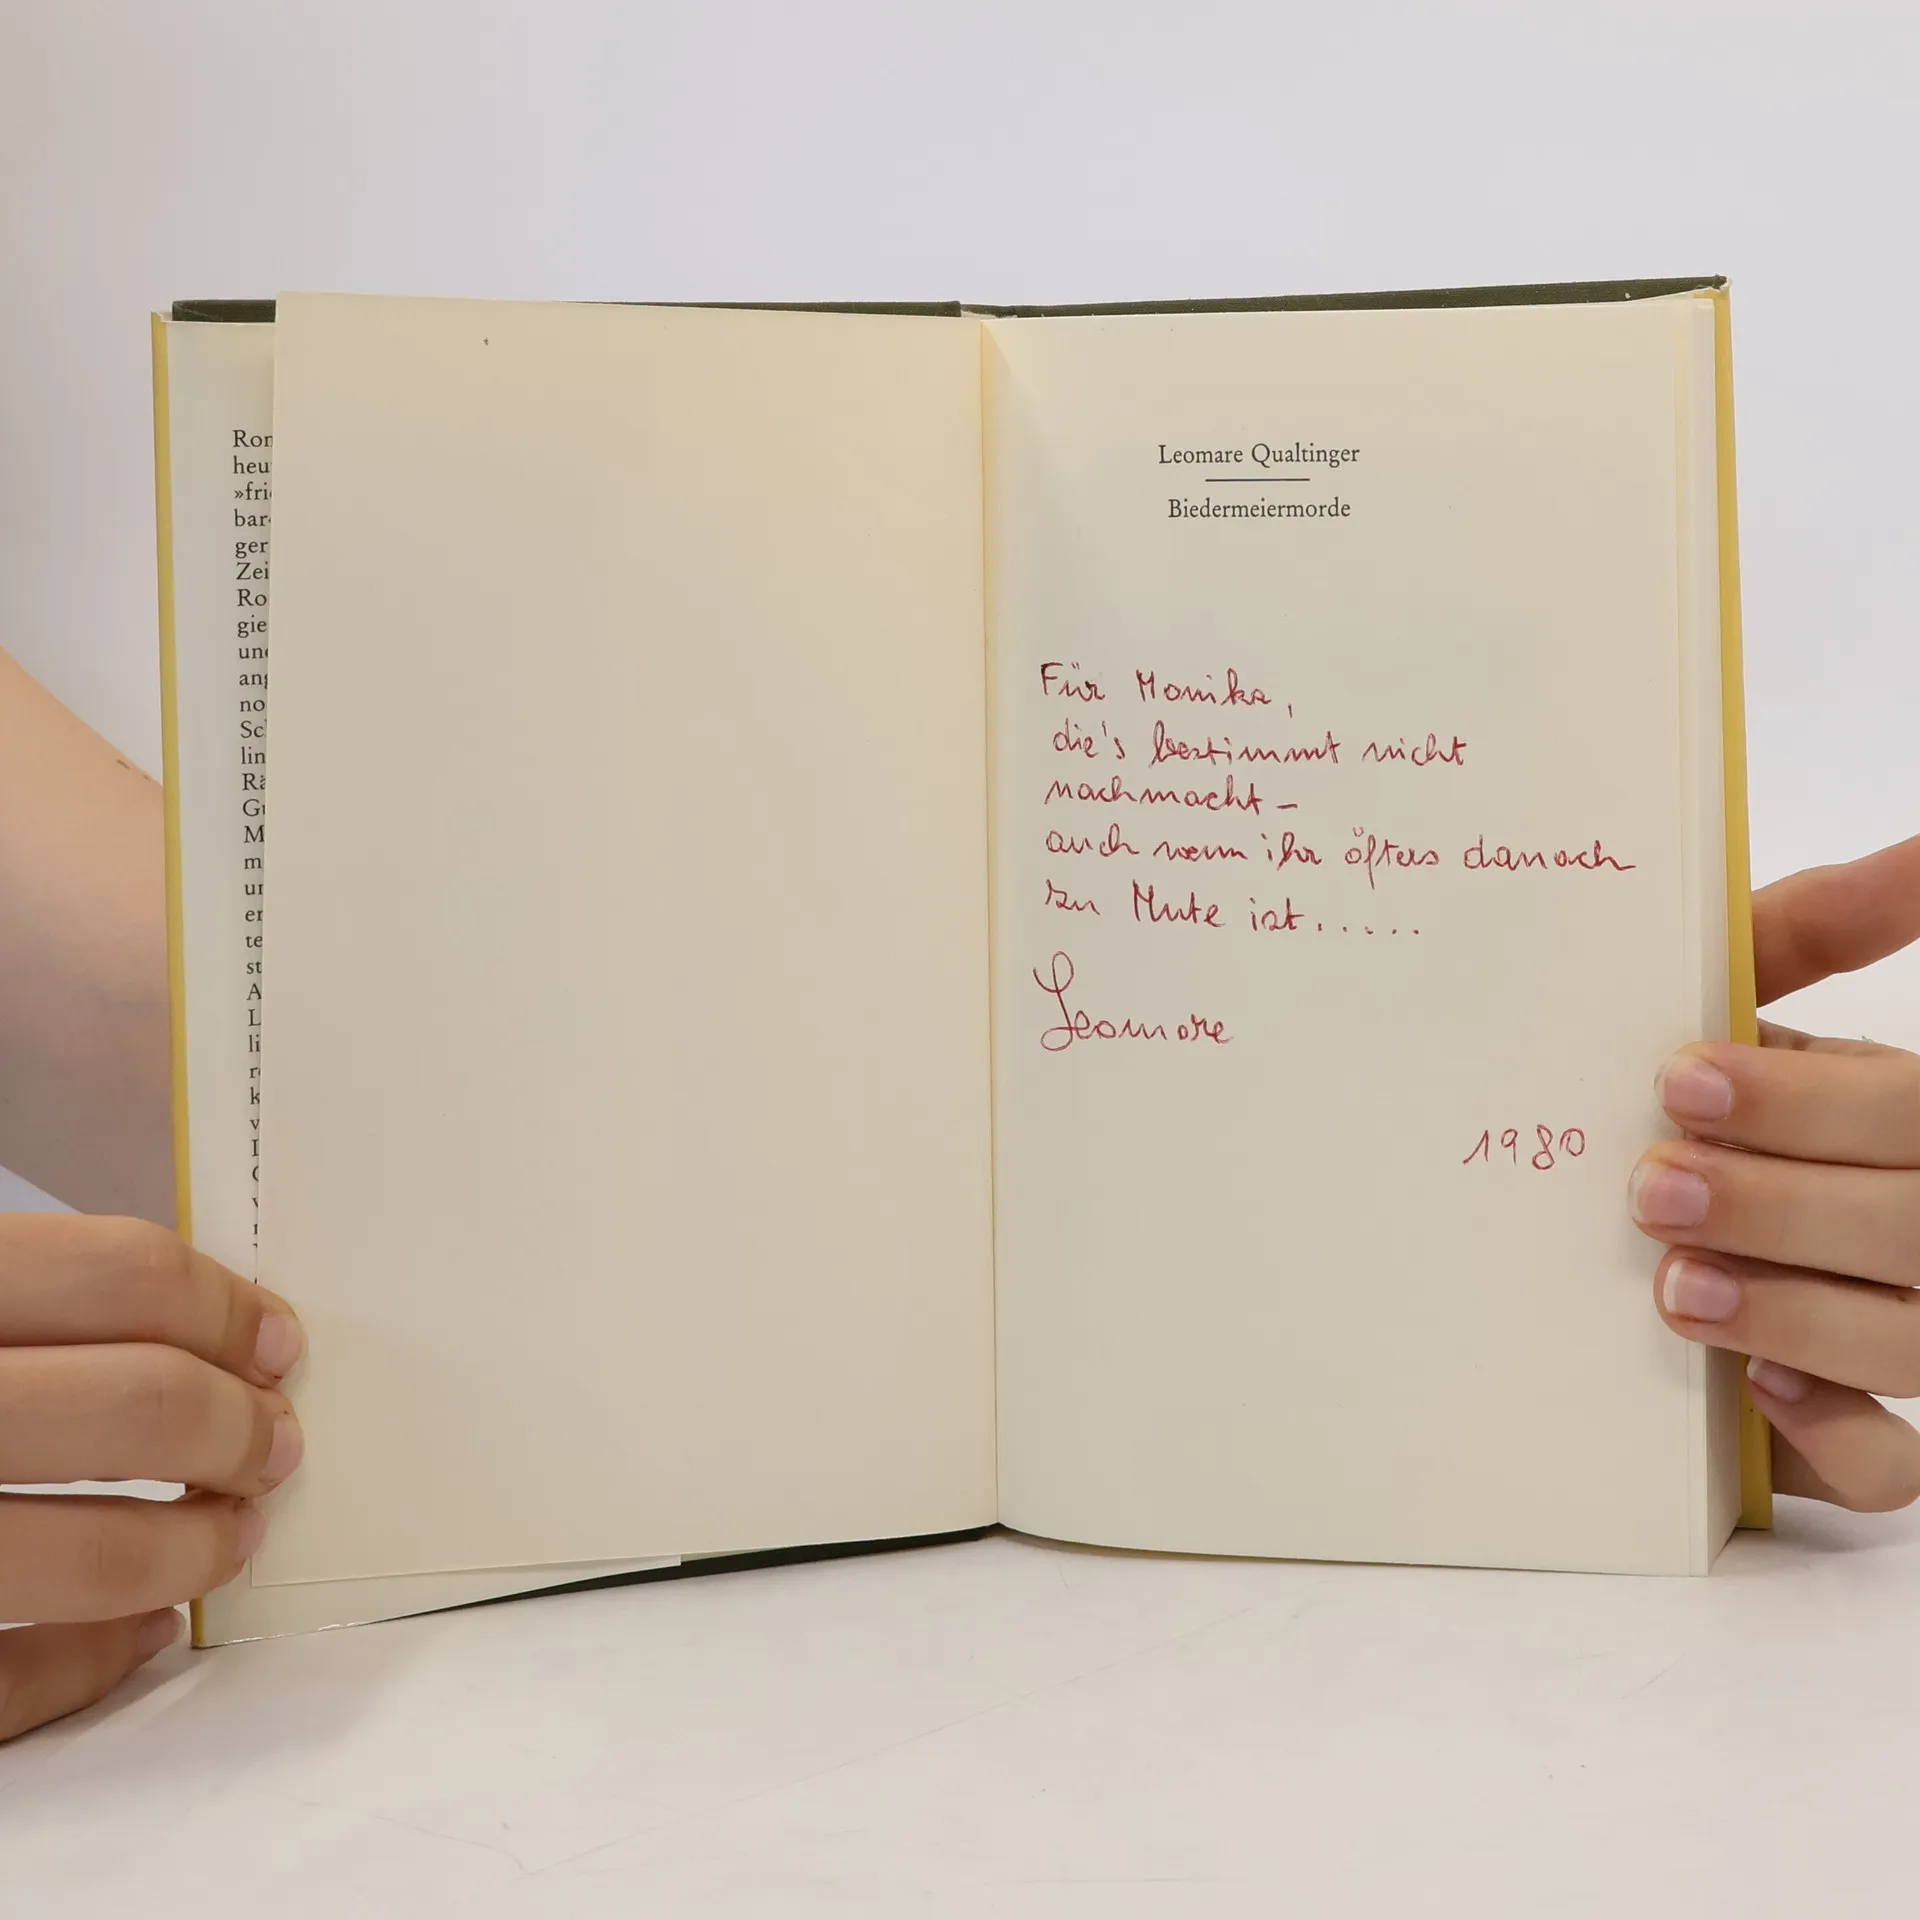 Ron
heu
»fri
bar
ger
Zei
Ro
gie
und
ang
no
Sc
lin
Rä
Gu
M
m
un
er
te
st
A
L
li
re
k
v
Leomare Qualtinger
Biedermeiermorde
Für Monika,
die's bestimmt nicht
nachmacht –
auch wenn ihr öfters danach
zu Mute ist.....
Leomare
1980